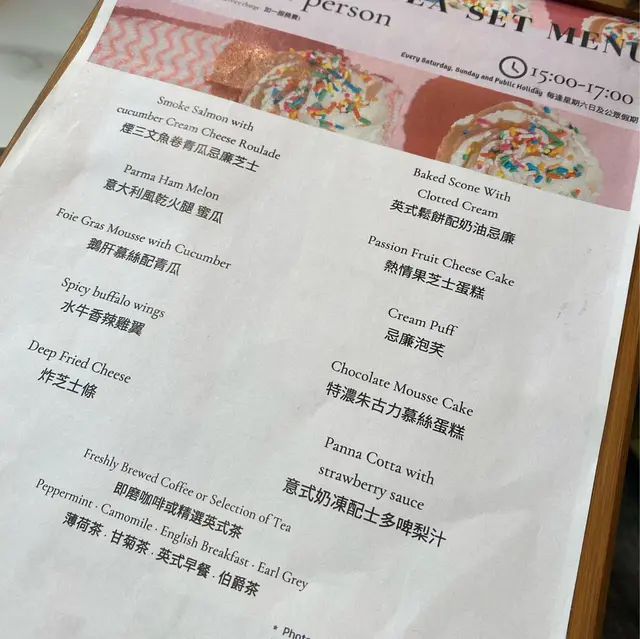 TEA SET MENU
person
加一服務費)
15:00-17:00
Every Saturday, Sunday and Public Holiday 每逢星期六日及公眾假期
Smoke Salmon with
cucumber Cream Cheese Roulade
煙三文魚卷青瓜忌廉芝士
Parma Ham Melon
意大利風乾火腿 蜜瓜
Foie Gras Mousse with Cucumber
鵝肝慕絲配青瓜
Spicy buffalo wings
水牛香辣雞翼
Deep Fried Cheese
炸芝士條
Baked Scone With
Clotted Cream
英式鬆餅配奶油忌廉
Passion Fruit Cheese Cake
熱情果芝士蛋糕
Cream Puff
忌廉泡芙
Chocolate Mousse Cake
特濃朱古力慕絲蛋糕
Panna Cotta with
strawberry sauce
意式奶凍配士多啤梨汁
Freshly Brewed Coffee or Selection of Tea
即磨咖啡或精選英式茶
Peppermint . Camomile . English Breakfast . Earl Grey
薄荷茶 . 甘菊茶 . 英式早餐 . 伯爵茶
* Photo